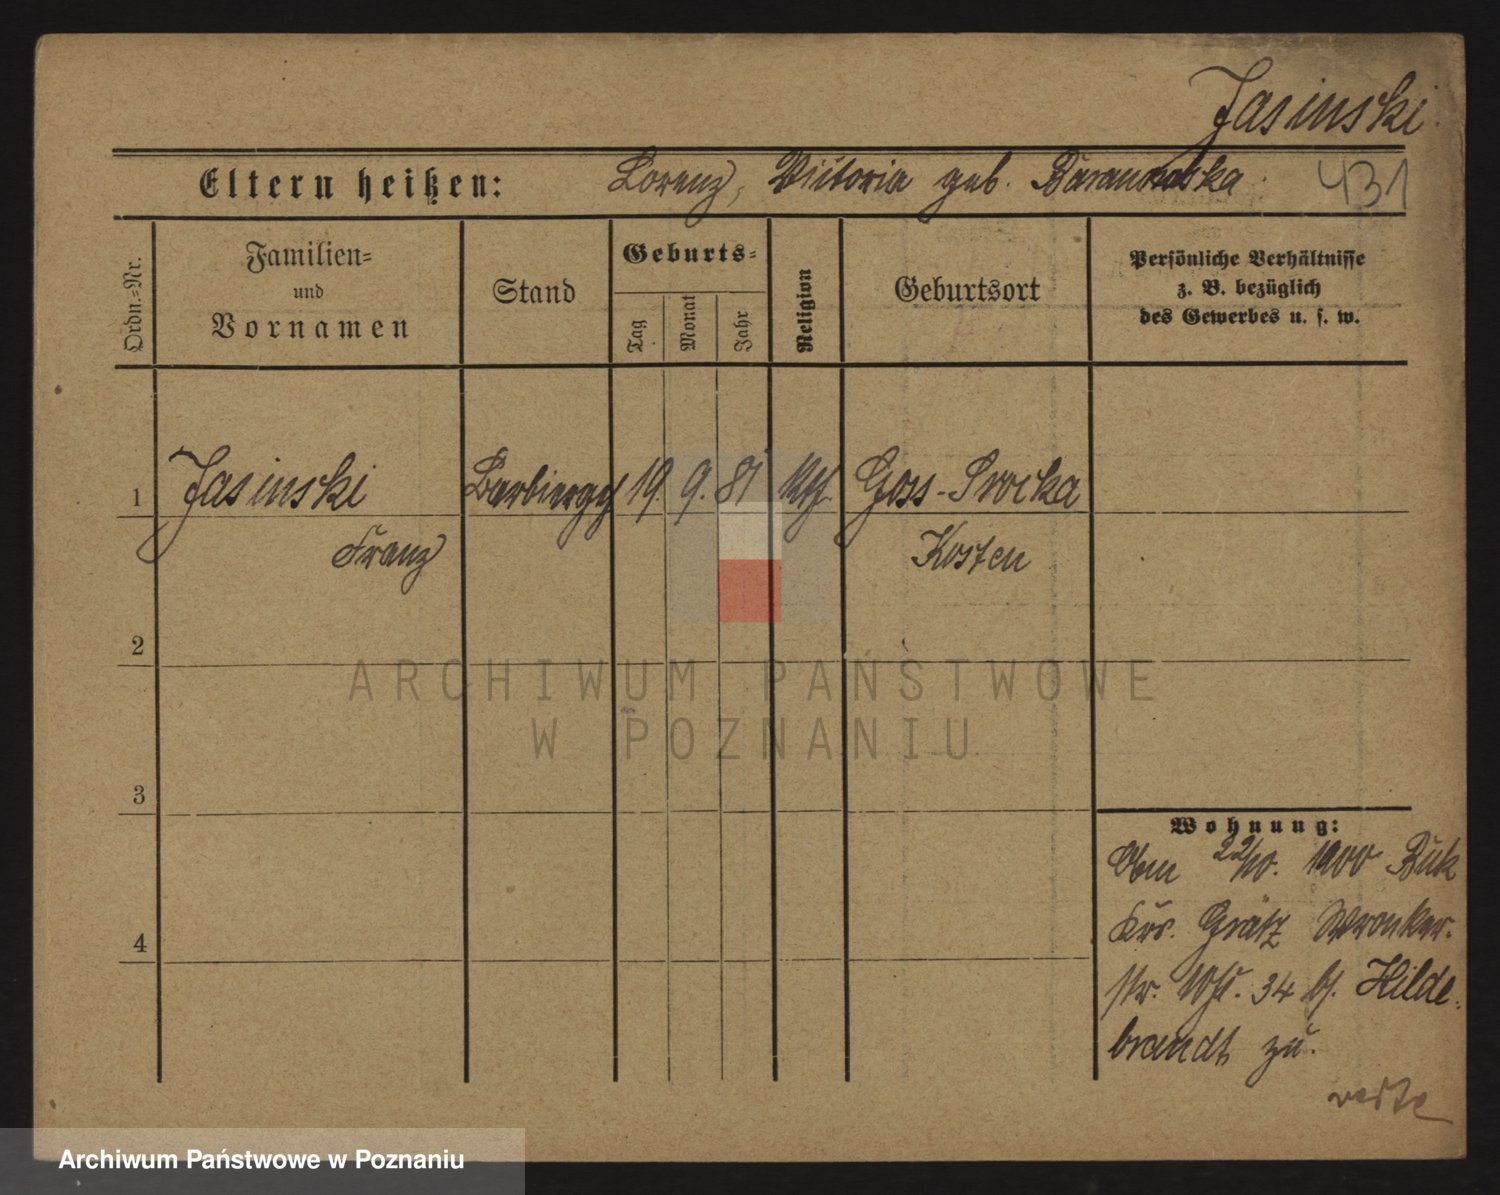 Jasinski.
Eltern heißen: Lorenz, Victoria geb. Baranowska.
431
Ordn.=Nr.
Familien=
und
Vornamen
Stand
Geburts=
Tag
Monat
Jahr
Religion
Geburtsort
Persönliche Verhältnisse
z. B. bezüglich
des Gewerbes u. s. w.
1 Jasinski Barbiergh 19. 9. 81 kth. Goss-Srocka
Franz Kosten
2
3
4
ARCHIWUM PAŃSTWOWE
W POZNANIU
Wohnung:
22/10. 1900 Buk
Krs. Grätz Wronker-
str. 34 b. Hilde-
brandt zu.
verte
Archiwum Państwowe w Poznaniu